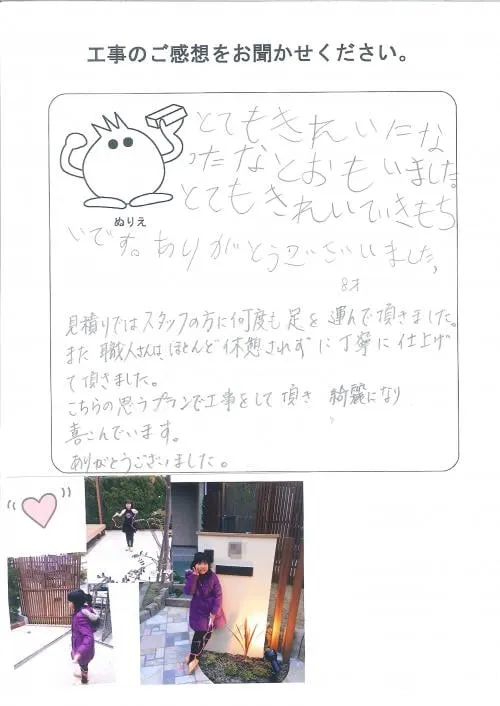 工事のご感想をお聞かせください。
とてもきれいにな
ったなとおもいました。
とてもきれいでいきもち
いです。ありがとうございました。
8才
ぬりえ
見積りではスタッフの方に何度も足を運んで頂きました。
また職人さんは、ほとんど休憩されずに丁寧に仕上げ
て頂きました。
こちらの思うプランで工事をして頂き 綺麗になり
喜こんでいます。
ありがとうございました。